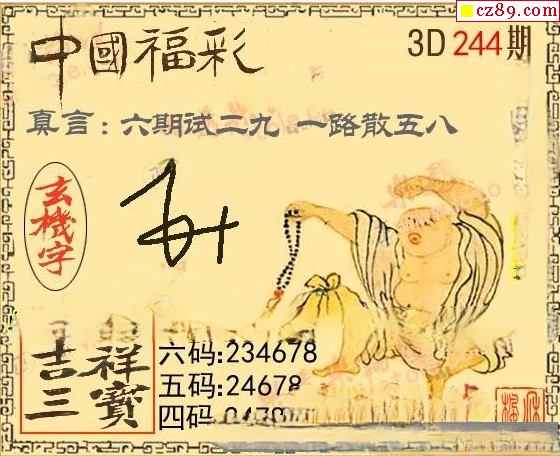 cz89.com
中國福彩
3D 244期
真言：六期试二九 一路散五八
玄機字
吉祥
三寶
六码:234678
五码:24678
四码: